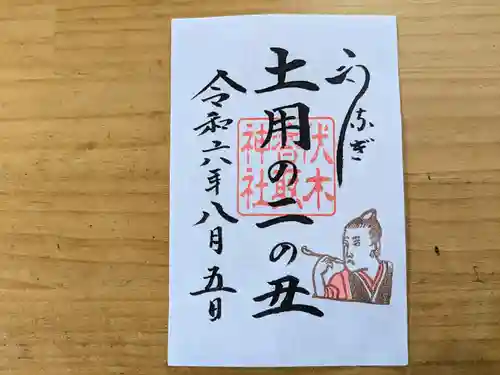 うなぎ
土用の二の丑
令和六年八月五日
伏木
香取
神社